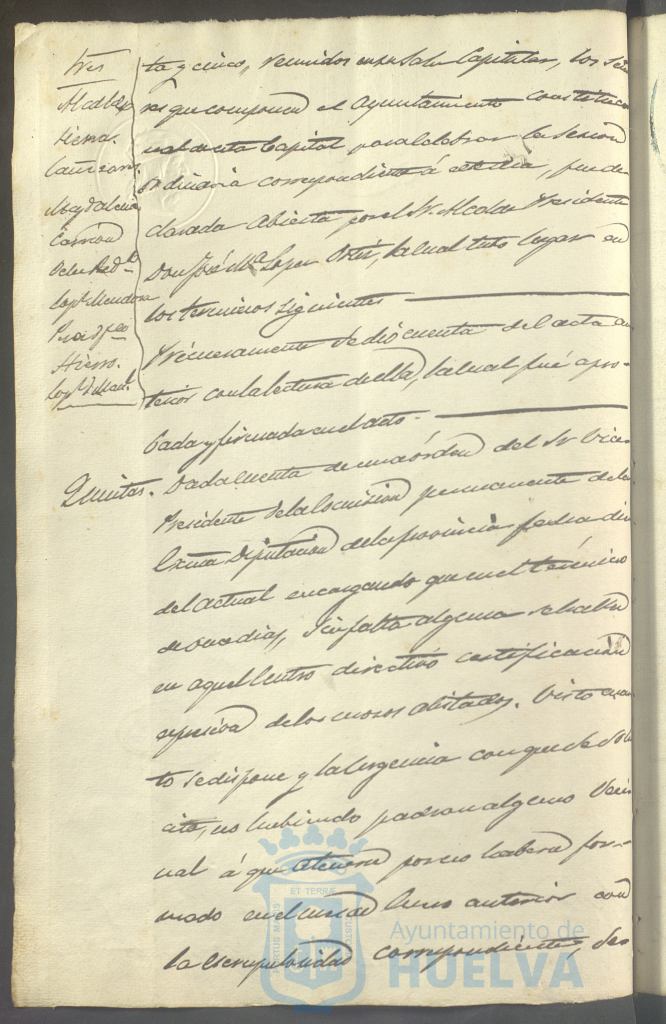 tres
Alcalde
Hierro.
Magdalena
Carrión
Lopz Mendoza
Hierro.
ta y cinco, reunidos en su Sala Capitular, los Seño
res que componen el Ayuntamiento constitucio
nal de esta Capital para celebrar la Sesion
ordinaria correspondiente á este dia, fue de-
clarada abierta por el Sr. Alcalde Presidente
Don José Ma. Lopez Ortiz, la cual tuvo lugar en
los terminos siguientes
Primeramente se dió cuenta del acta an
terior con la lectura de ella, la cual fué apro-
bada y firmada en el acto.
Quintas. Dada cuenta de una órden del Sr Vice
Presidente de la Comision permanente de la
Excma Diputacion de la provincia fecha diez
del actual encargando que en el término
de once dias, sin falta alguna se halle
en aquel Centro directivo certificacion
espresiva de los mozos alistados. Visto cuan
to se dispone y la urgencia con que se soli
cita, no habiendo padron alguno veci
nal á que atenerse por no haberse for-
mado en el mes de Enero anterior con
la escrupulosidad correspondiente, Se
Ayuntamiento de
HUELVA
ET TERRÆ
PORTUS MARIS
CUSTODIA